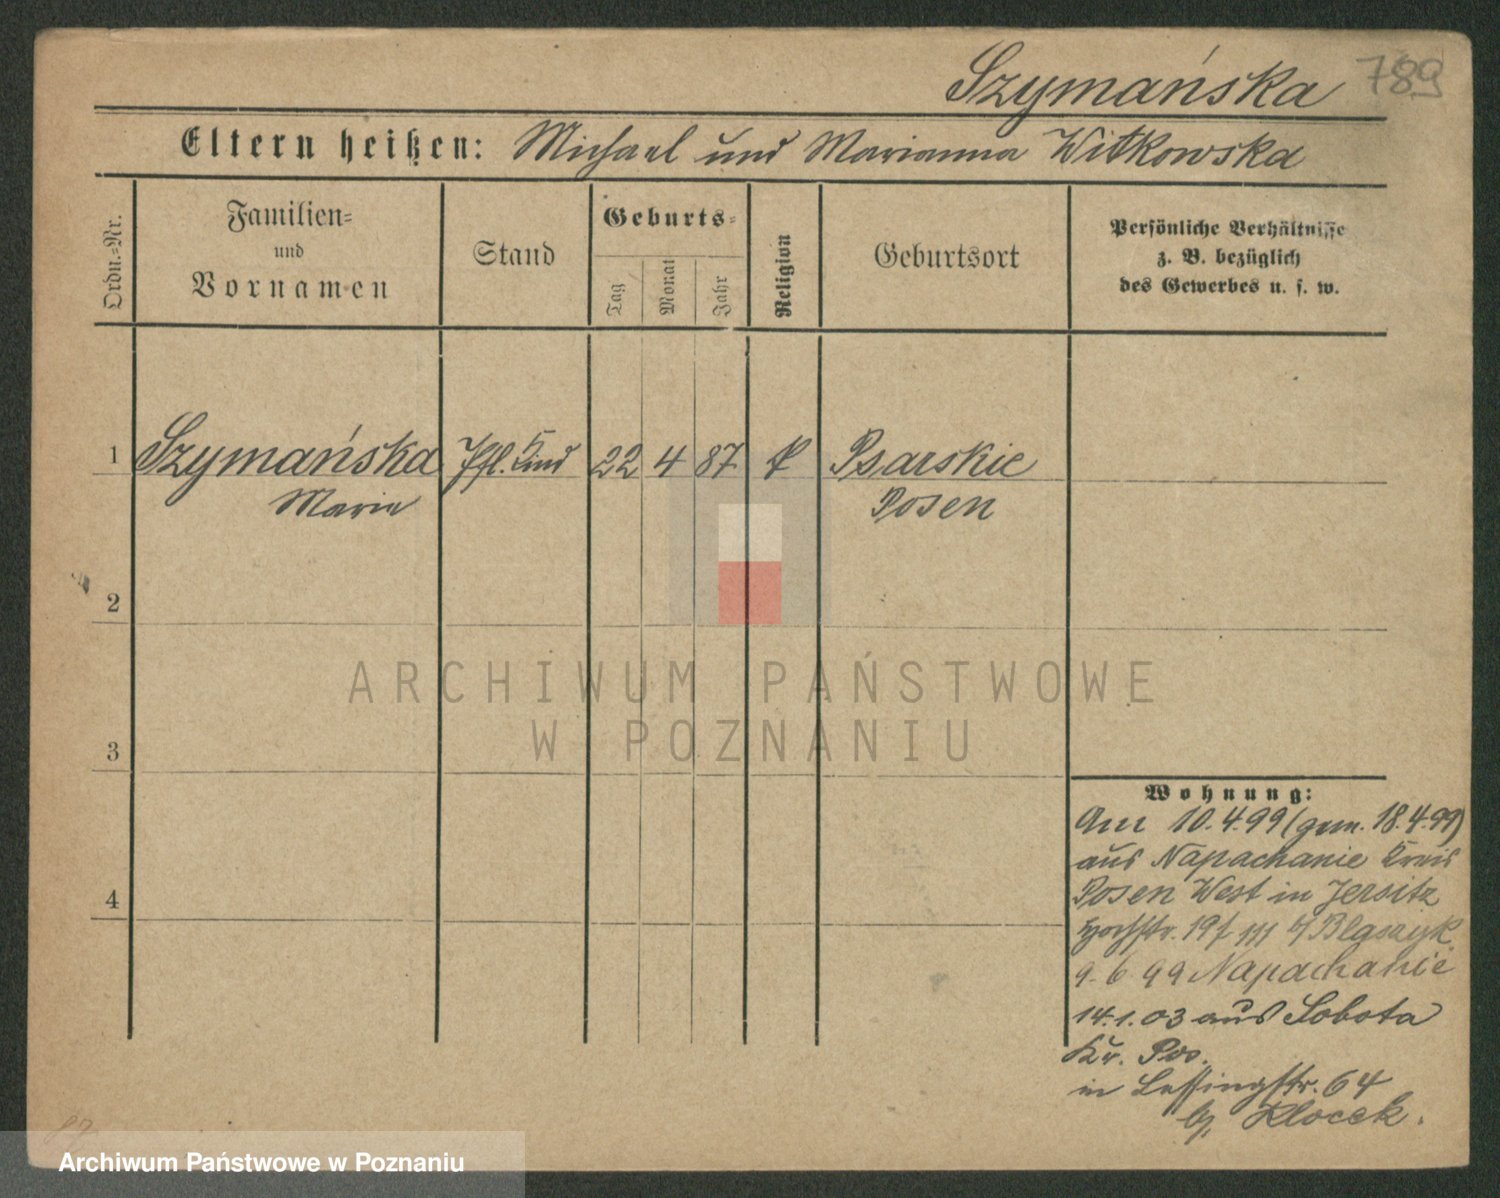 Szymańska 789
Eltern heißen: Michael und Marianna Witkowska
Ordn.-Nr.
Familien-
und
Vornamen
Stand
Geburts-
Tag
Monat
Jahr
Religion
Geburtsort
Persönliche Verhältnisse
z. B. bezüglich
des Gewerbes u. s. w.
1 Szymańska Pfl. Kind 22 4 87 k Psarskie
Marie Posen
2
ARCHIWUM PAŃSTWOWE
W POZNANIU
3
4
Wohnung:
Am 10.4.99 (gem. 18.4.99)
aus Napachanie Kreis
Posen West in Jersitz
Hochstr. 19
9.6.99 Napachanie
14.1.03 aus Sobota
Kr. Pos.
in Lessingstr. 64
b/ Klocek.
Archiwum Państwowe w Poznaniu